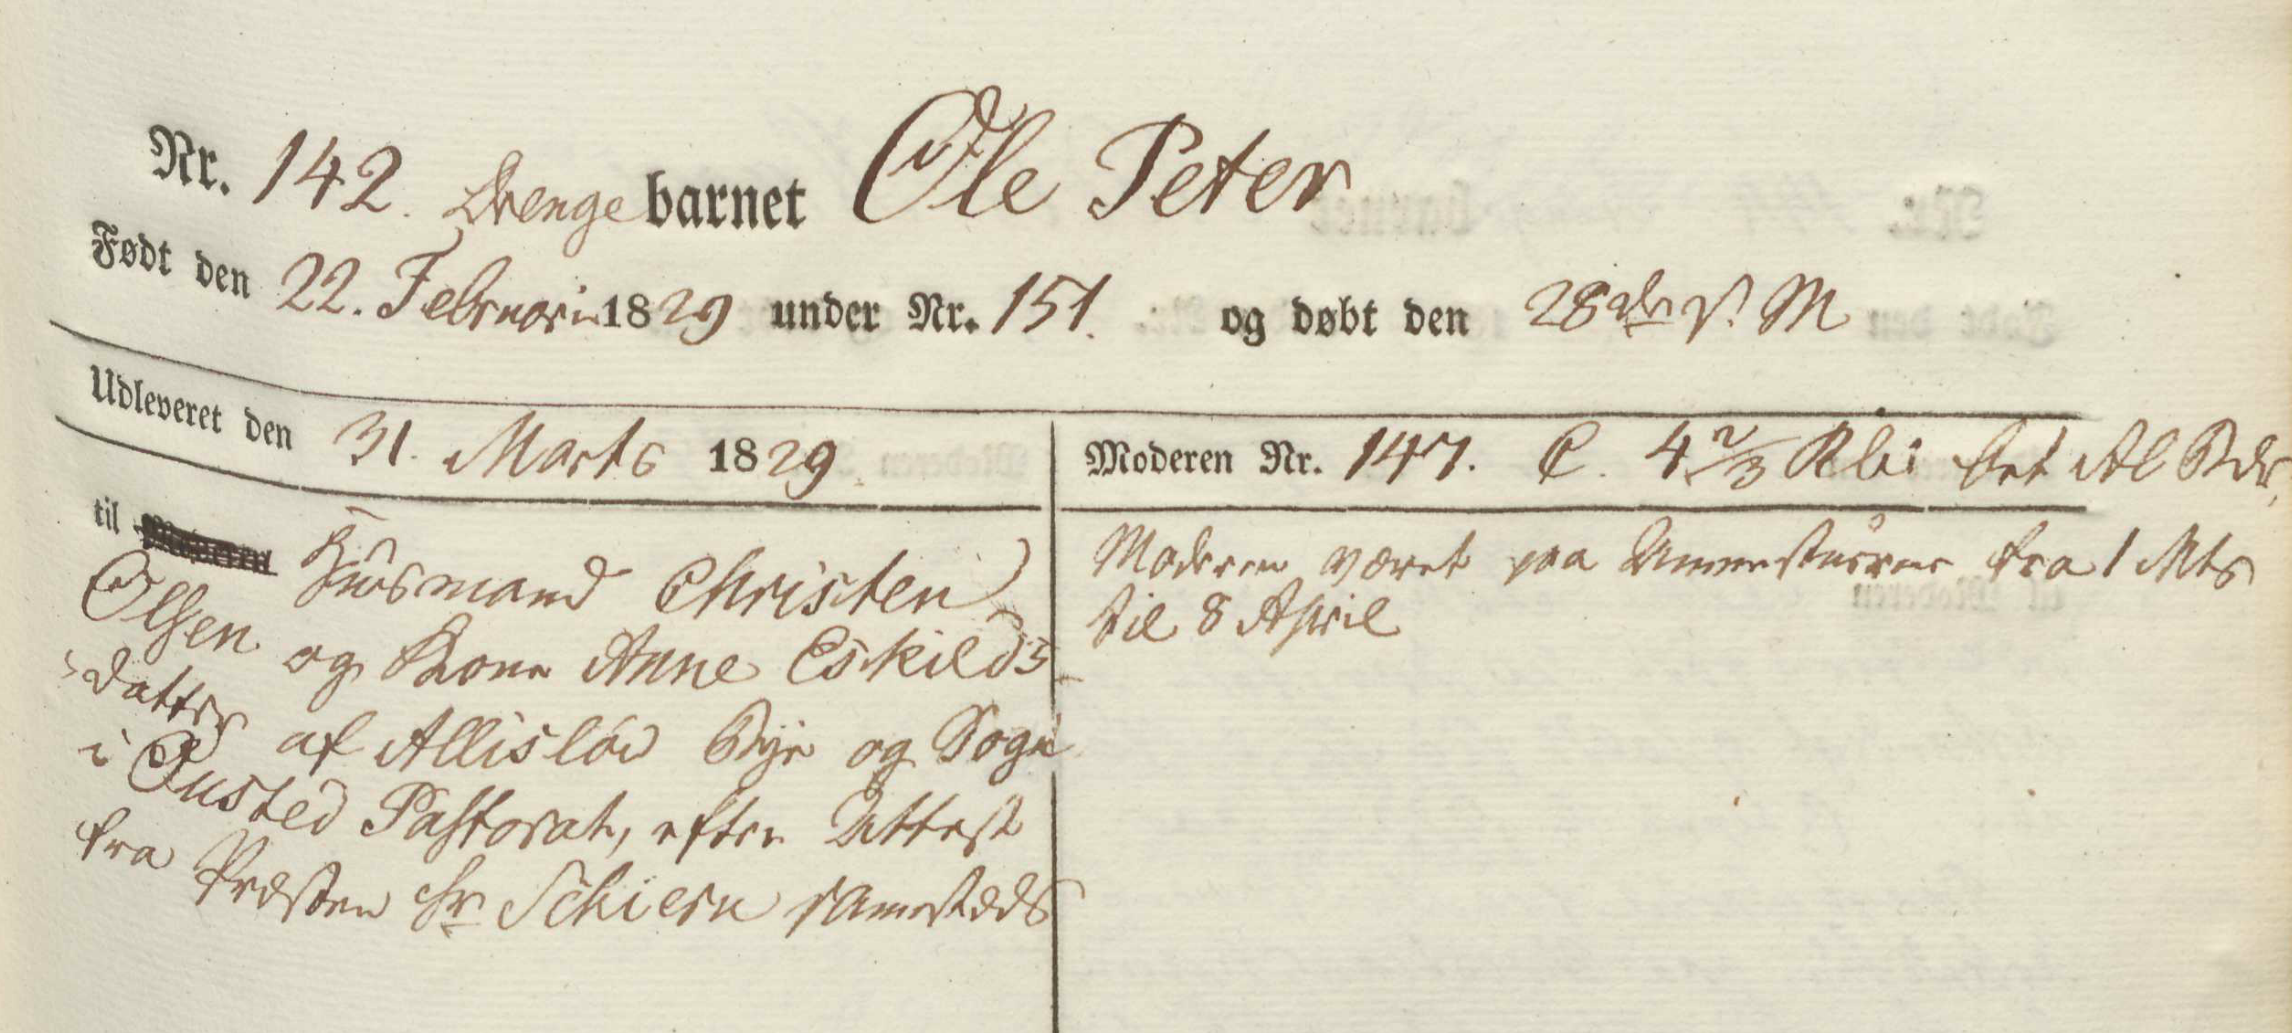 Nr. 142. Drengebarnet Ole Peter
Født den 22. Februari 1829 under Nr. 151. og døbt den 28de s. M
Udleveret den 31. Marts 1829.
til Moderen Huusmand Christen
Olsen og Kone Anne Eskilds
datter af Allisløv Bye og Sogn
i Ousted Pastorat, efter Attest
fra Præsten Hr Schiern samesteds
Moderen Nr. 147. C. 4 2/3 Rbd
Moderen været paa Ammestuerne fra 1 Mts
til 8 April